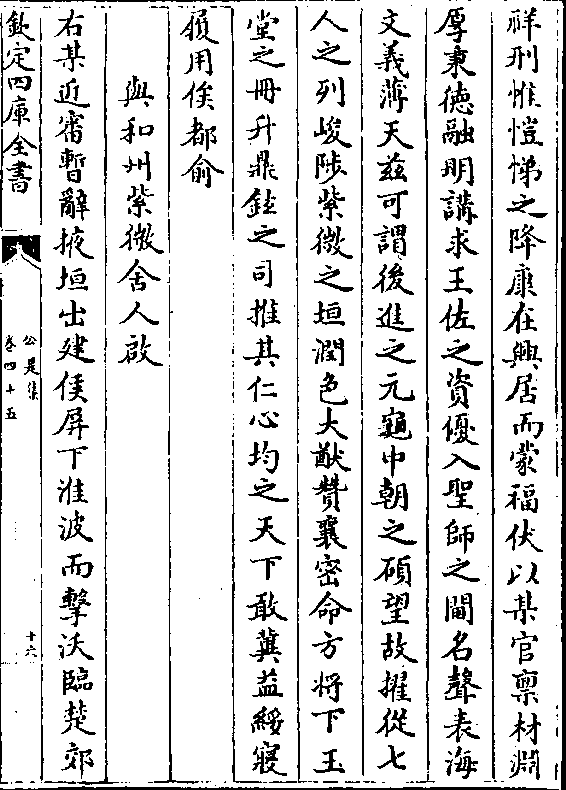 祥刑惟愷悌之降康在興居而蒙福伏以某官禀材淵
厚秉德融明講求王佐之資優入聖師之閫名聲表海
文義薄天兹可謂後進之元龜中朝之碩望故擢從七
人之列峻陟紫微之垣潤色大猷贊襄密命方將下玉
堂之冊升鼎鉉之司推其仁心均之天下敢冀益綏寢
履用俟都俞
與和州紫微舍人啟
右某近審暫辭掖垣出建侯屏下淮波而擊汰臨楚郊
欽定四庫全書
公是集
卷四十五
十六